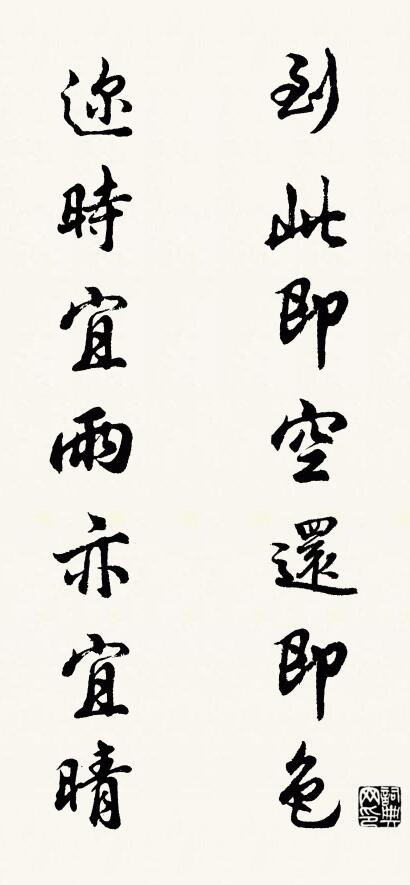 到此即空還即色
迩時宜雨亦宜晴
詞典网印